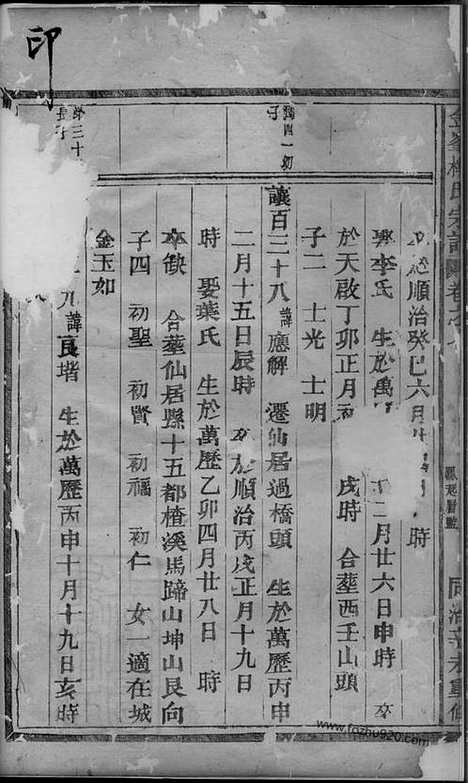 印
氏宗譜
卷之
同治辛未重修
於順治癸巳六月 時
娶李氏 生於萬 二月廿六日申時 卒
於天啟丁卯正月 戌時 合葬西壬山頭
子二 士光 士明
讓百三十八諱應解 遷仙居過橋頭 生於萬歷丙申
二月十五日辰時 卒於順治丙戌正月十九日
時 娶葉氏 生於萬歷乙卯四月廿八日 時
卒缺 合葬仙居縣十五都楂溪馬蹄山坤山艮向
子四 初聖 初賢 初福 初仁 女一適在城
金玉如
九諱良堦 生於萬歷丙申十月十九日亥時
www.fozhu920.com